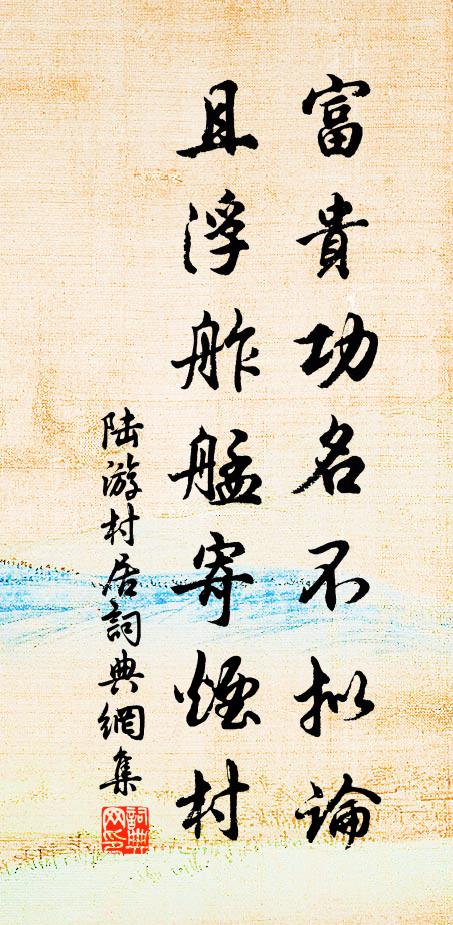 富貴功名不拟論
且浮舴艋寄煙村
陆游村居詞典網集